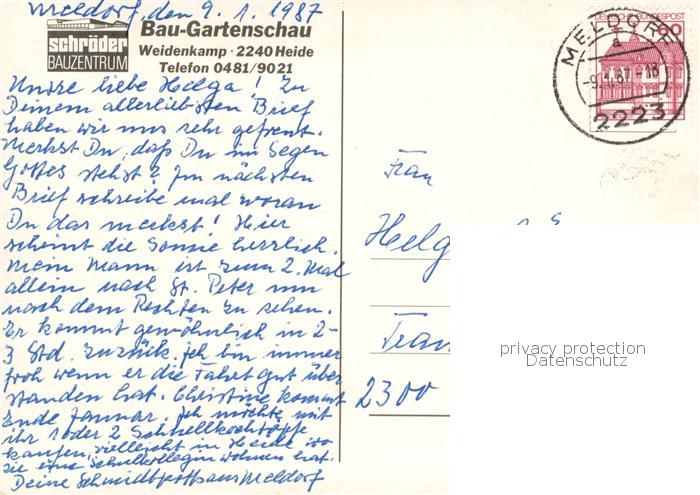 Meldorf den 9. 1. 1987
schröder
BAUZENTRUM
Bau-Gartenschau
Weidenkamp · 2240 Heide
Telefon 0481/9021
Unsre liebe Helga! Zu
Deinem allerliebsten Brief
haben wir uns sehr gefreut.
Merkst Du, daß Du im Segen
Gottes stehst? Im nächsten
Brief schreibe mal woran
Du das merkst! Hier
scheint die Sonne herrlich.
Mein Mann ist zum 2. Mal
allein nach St. Peter um
nach dem Rechten zu sehen.
Er kommt gewöhnlich in 2-
3 Std. zurück. Ich bin immer
froh wenn er die Fahrt gut über
standen hat. Christine kommt
Ende Januar. Ich möchte mit
ihr 1 oder 2 Schnellkochtöpfe
kaufen, vielleicht in Heide wo
sie eine Schulkollegin wohnen hat.
Deine aus Meldorf
DEUTSCHE BUNDESPOST
60
MELDORF
a
-9.1.87-18
2223
Frau
Helg
2300
privacy protection
Datenschutz